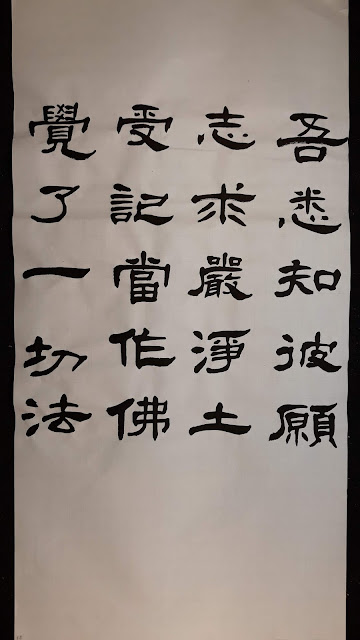 吾悉知彼願
志求嚴淨土
受記當作佛
覺了一切法